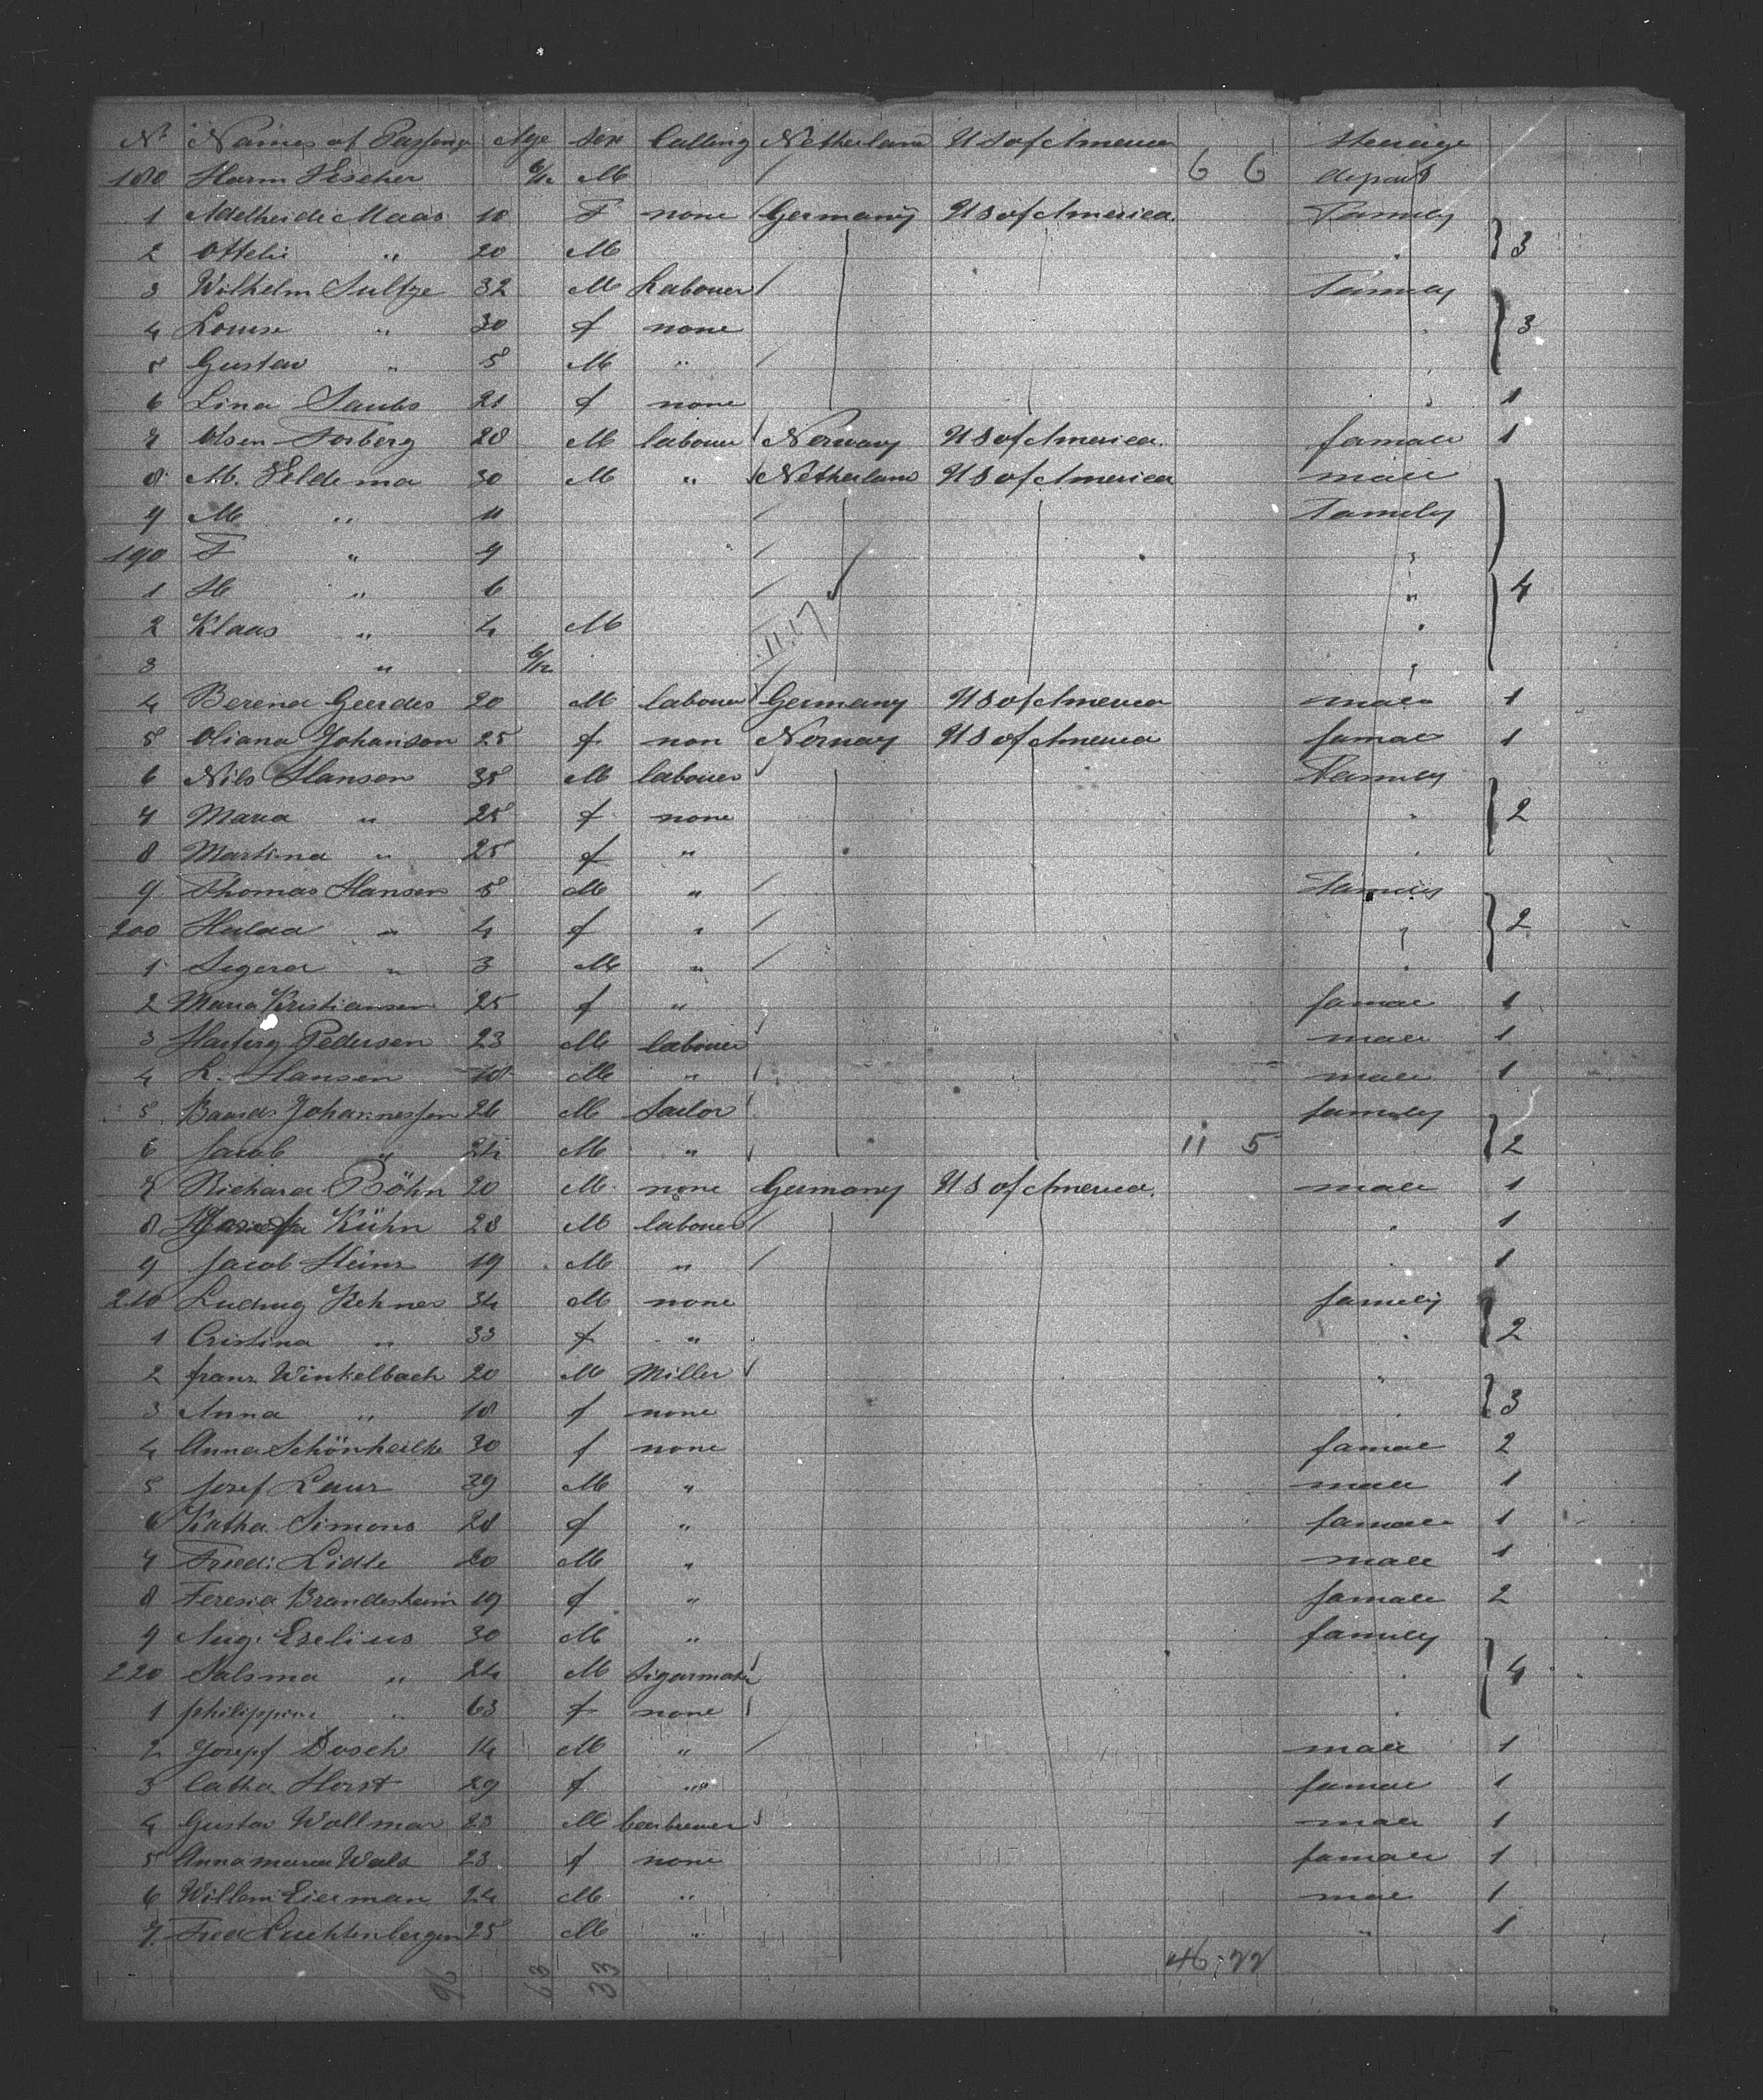 No Names of Passeng Age sex Calling Netherland US of America Steerage
180 Harm Fischer 6/12 M 6 6 depart
1 Adelheide Maas 18 F none Germany US of America Family
2 Otteli " 20 M " } 3
3 Wilhelm Sultze 32 M Labouer Family
4 Louise " 30 f none " } 3
5 Gustav " 5 M " "
6 Lina Saubs 21 f none " 1
7 Olsen Forberg 28 M labouer Norway US of America famale 1
8 M. Feldema 30 M " Netherland US of America male
9 M " 11 Family
190 F " 9 "
1 H " 6 " } 4
2 Klaas " 4 M 11.17 "
3 " 6/12 "
4 Berend Geerdes 20 M labouer Germany US of America male 1
5 Oliana Johanson 25 f non Norway US of America famale 1
6 Nils Hansen 35 M labouer Family
7 Maria " 25 f none " } 2
8 Martina " 25 f " "
9 Thomas Hansen 5 M " Family
200 Hulda " 4 f " " } 2
1 Sigera " 3 M " "
2 Maria Kristiansen 25 f " famale 1
3 Pedersen 23 M labouer male 1
4 L. Hansen 18 M " male 1
5 Johannessen 26 M Sailor famely
6 Jacob " 24 M " 11 5 } 2
7 Richard Böhn 20 M none Germany US of America. male 1
8 Kühn 28 M labouer " 1
9 Jacob Heinz 19 M " " 1
210 Ludwig Kehner 34 M none famely
1 Cristina " 33 f " " } 2
2 franz Winkelbach 20 M Miller "
3 Anna " 18 f none " } 3
4 Anna Schönheilke 30 f none famale 2
5 Josef Laur 39 M " male 1
6 Katha Simons 28 f " famale 1
7 Friedr: Lidle 20 M " male 1
8 Feresia Brandesheim 19 f " famale 2
9 Aug. Eselius 30 M " famely
220 Salsma " 24 M Sigarmaker " } 4
1 philippine " 63 f none "
2 Josepf Dosch 14 M " male 1
3 Catha Horst 29 f " famale 1
4 Gustav Wollmar 23 M beerbrewer male 1
5 Anna maria Wals 23 f none famale 1
6 Willem Eierman 24 M " male 1
7. Fred Luchtenbergen 25 M " " 1
46 22
96 63 33